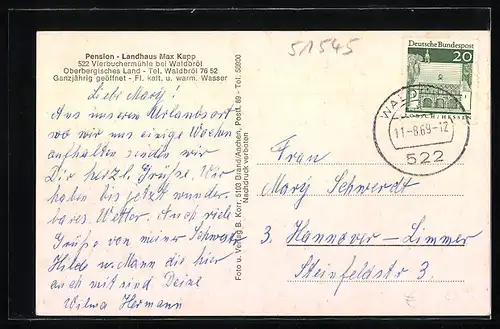 Pension - Landhaus Max Kapp
522 Vierbuchermühle bei Waldbröl
Oberbergisches Land - Tel. Waldbröl 76 52
Ganzjährig geöffnet - Fl. kalt. u. warm. Wasser
51545
Deutsche Bundespost
20
LORSCH/HESSEN
WALDBRÖL
11.-8.69-12
522
Liebe Mary!
Aus unserem Urlaubsort
wo wir uns einige Wochen
aufhalten senden wir
Dir herzl. Grüße. Wir
haben bis jetzt wunder-
bares Wetter. Auch viele
Grüße von meiner Schwester
Hilde u. Mann die hier
auch mit sind Deine
Wilma Hermann
Foto u. Verlag B. Korr, 5103 Brand/Aachen, Postf. 89 - Tel. 58800
Nachdruck verboten
Frau
Mary Schwerdt
3. Hannover-Limmer
Steinfeldstr 3.